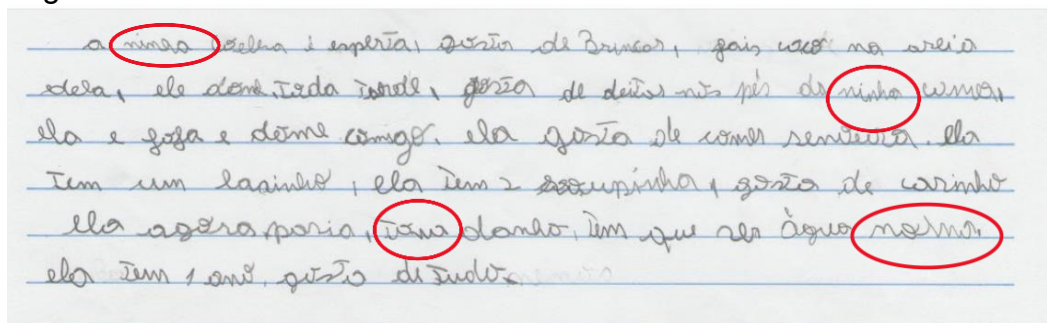 a ninha coelha é esperta, gosta de Brincar, fais coco na areia
dela, ele dome toda tarde, gosta de deitar nos pés da ninha cama,
ela e fofa e dome comogo. ela gosta de comer senoura. ela
tem um lasinho, ela tem 2 rroupinha, gosta de carinho
ela agora paria, toma danho, tem que ser água norna.
ela tem 1 ano. gosta de tudo.